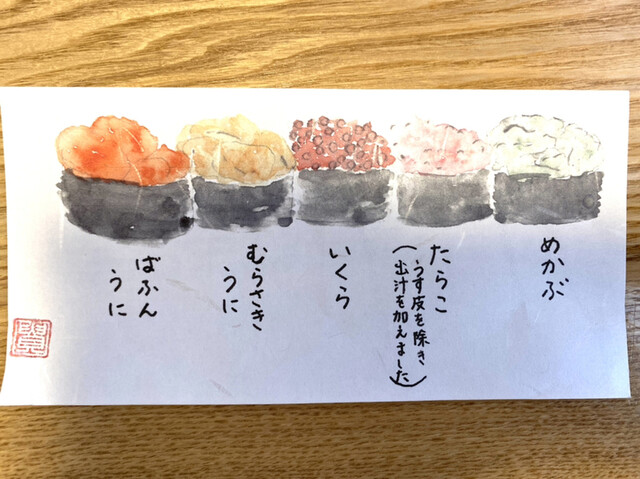 めかぶ
たらこ
（うす皮を除き
出汁を加えました）
いくら
むらさき
うに
ばふん
うに